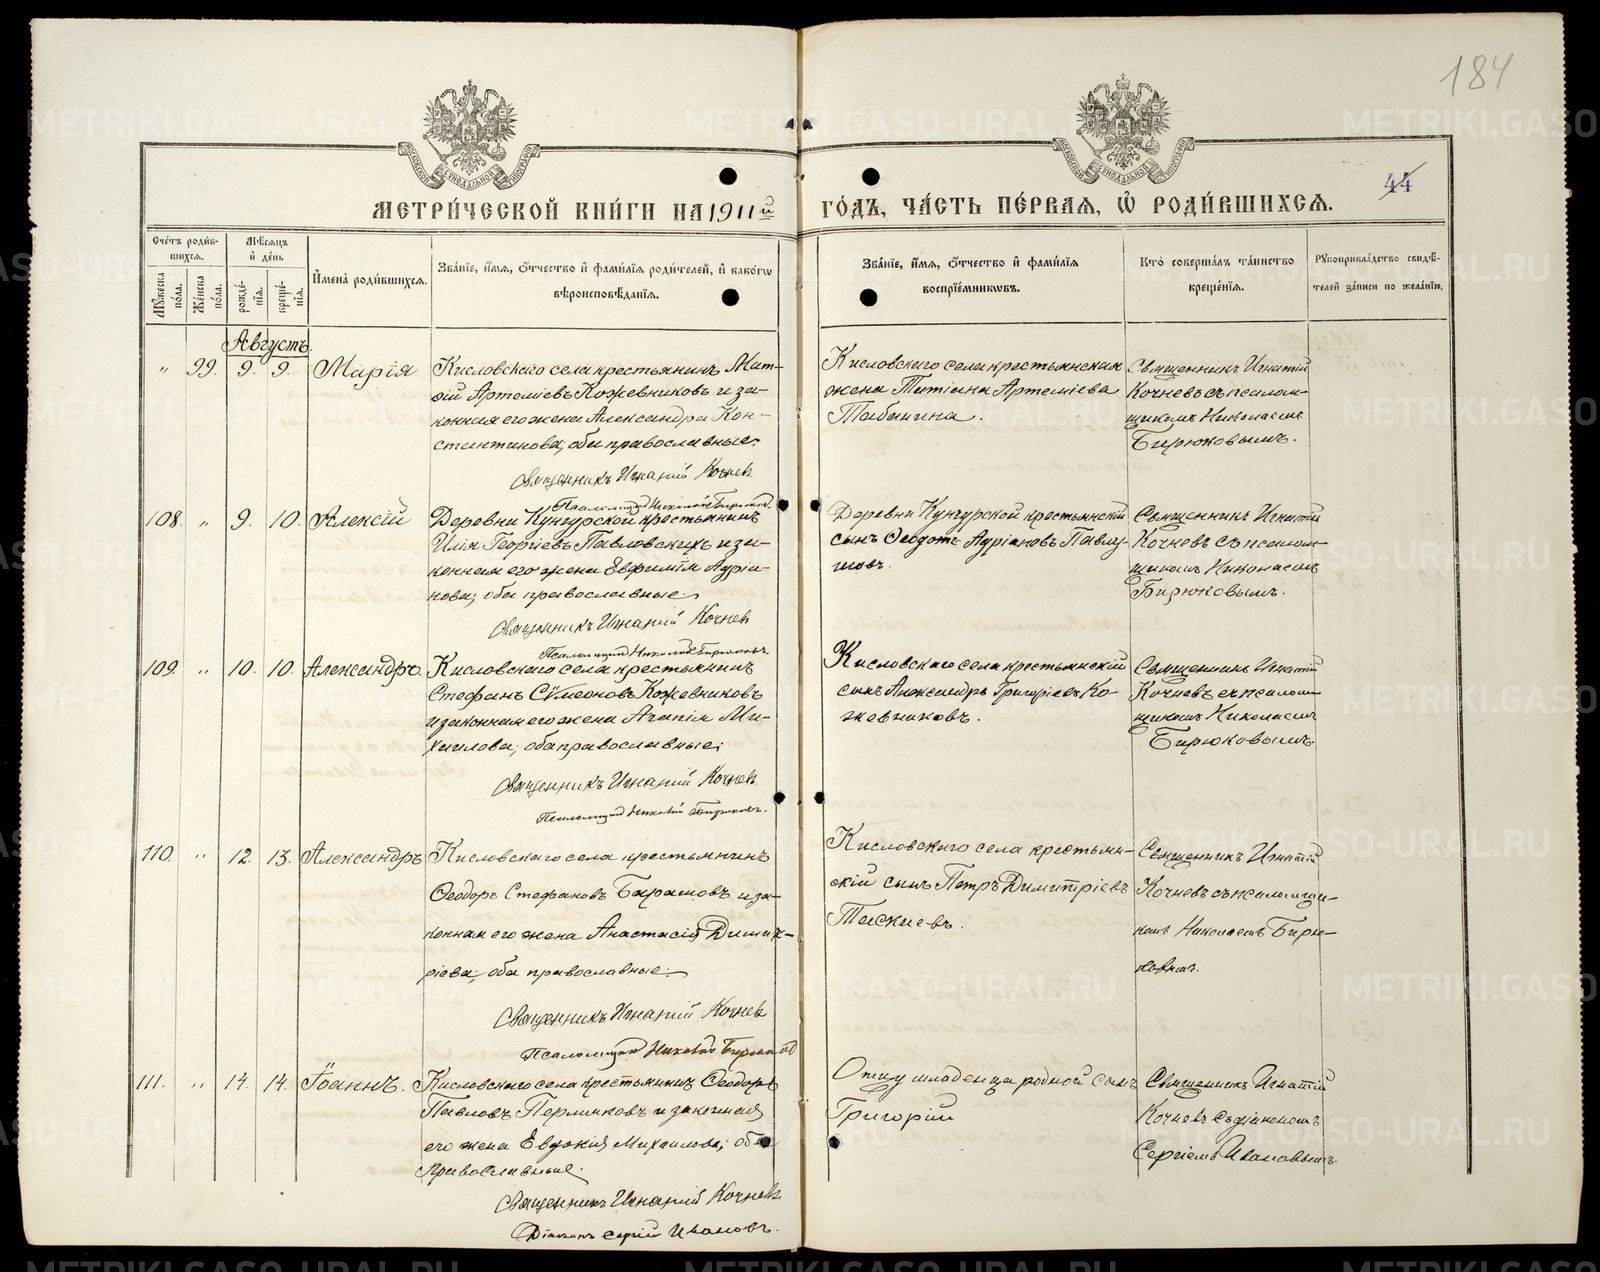 184
44
МЕТРИ́ЧЕСКОЙ КНИ́ГИ НА 1911й ГО́ДЪ, ЧА́СТЬ ПЕ́РВАЯ, Ѡ҆ РОДИ́ВШИХСЯ.
Сче́тъ роди́в-
шихся.
Му́жеска по́ла.
Же́нска по́ла.
Мѣ́сяцъ
и҆ де́нь
рожде́-
нія.
креще́-
нія.
И҆мена̀ роди́вшихся.
Зва́ніе, и҆́мя, ѻ҆́тчество и҆ фами́лія роди́телей, и҆ како́гѡ
вѣроисповѣ́данія.
Зва́ніе, и҆́мя, ѻ҆́тчество и҆ фами́лія
воспрїе́мниковъ.
Кто̀ соверша́лъ та́инство
креще́нія.
Рꙋкоприкла́дство свидѣ́-
телей за́писи по жела́нію.
Августъ.
" 99. 9. 9. Марія
Кисловскаго села крестьянинъ Мат-
ѳій Артеміевъ Кожевниковъ и за-
конная его жена Александра Кон-
стантинова; оба православные.
Священникъ Игнатій Кочнев
Псаломщик Николай Бирюков
Кисловскаго села крестьянская
жена Татіана Артеміева
Табынина.
Священникъ Игнатій
Кочневъ съ псалом-
щикомъ Николаемъ
Бирюковымъ.
108. " 9. 10. Алексій
Деревни Кунгурской крестьянинъ
Илія Георгіевъ Павловскихъ и за-
конная его жена Евфимія Адріа-
нова; оба православные.
Священникъ Игнатій Кочнев
Псаломщик Николай Бирюковъ
Деревни Кунгурской крестьянскій
сынъ Ѳеодотъ Адріановъ Павлу-
шовъ.
Священникъ Игнатій
Кочневъ съ псалом-
щикомъ Николаемъ
Бирюковымъ.
109. " 10. 10. Александръ.
Кисловскаго села крестьянинъ
Стефанъ Сѵмеоновъ Кожевниковъ
и законная его жена Агапія Ми-
хаилова; оба православные;
Священникъ Игнатій Кочнев
Псаломщик Николай Бирюковъ.
Кисловскаго села крестьянскій
сынъ Александръ Григоріевъ Ко-
жевниковъ.
Священникъ Игнатій
Кочневъ съ псалом-
щикомъ Николаемъ
Бирюковымъ.
110. " 12. 13. Александръ
Кисловскаго села крестьянинъ
Ѳеодоръ Стефановъ Барашовъ и за-
конная его жена Анастасія Димит-
ріева; оба православные.
Священникъ Игнатій Кочнев
Псаломщик Николай Бирюков
Кисловскаго села крестьян-
скій сынъ Петръ Димитріевъ
Таскаевъ.
Священникъ Игнатій
Кочневъ съ псаломщи-
комъ Николаемъ Бирю-
ковым.
111. " 14. 14. Іоаннъ.
Кисловскаго села крестьянинъ Ѳеодоръ
Павловъ Перминовъ и законная
его жена Евдокія Михаилова; оба
Православные.
Священникъ Игнатій Кочнев
Діаконъ Сергій Ивановъ.
Отцу младенца родной сынъ
Григорій
Священникъ Игнатій
Кочневъ съ діакономъ
Сергіемъ Ивановымъ.
METRIKI.GASO-URAL.RU